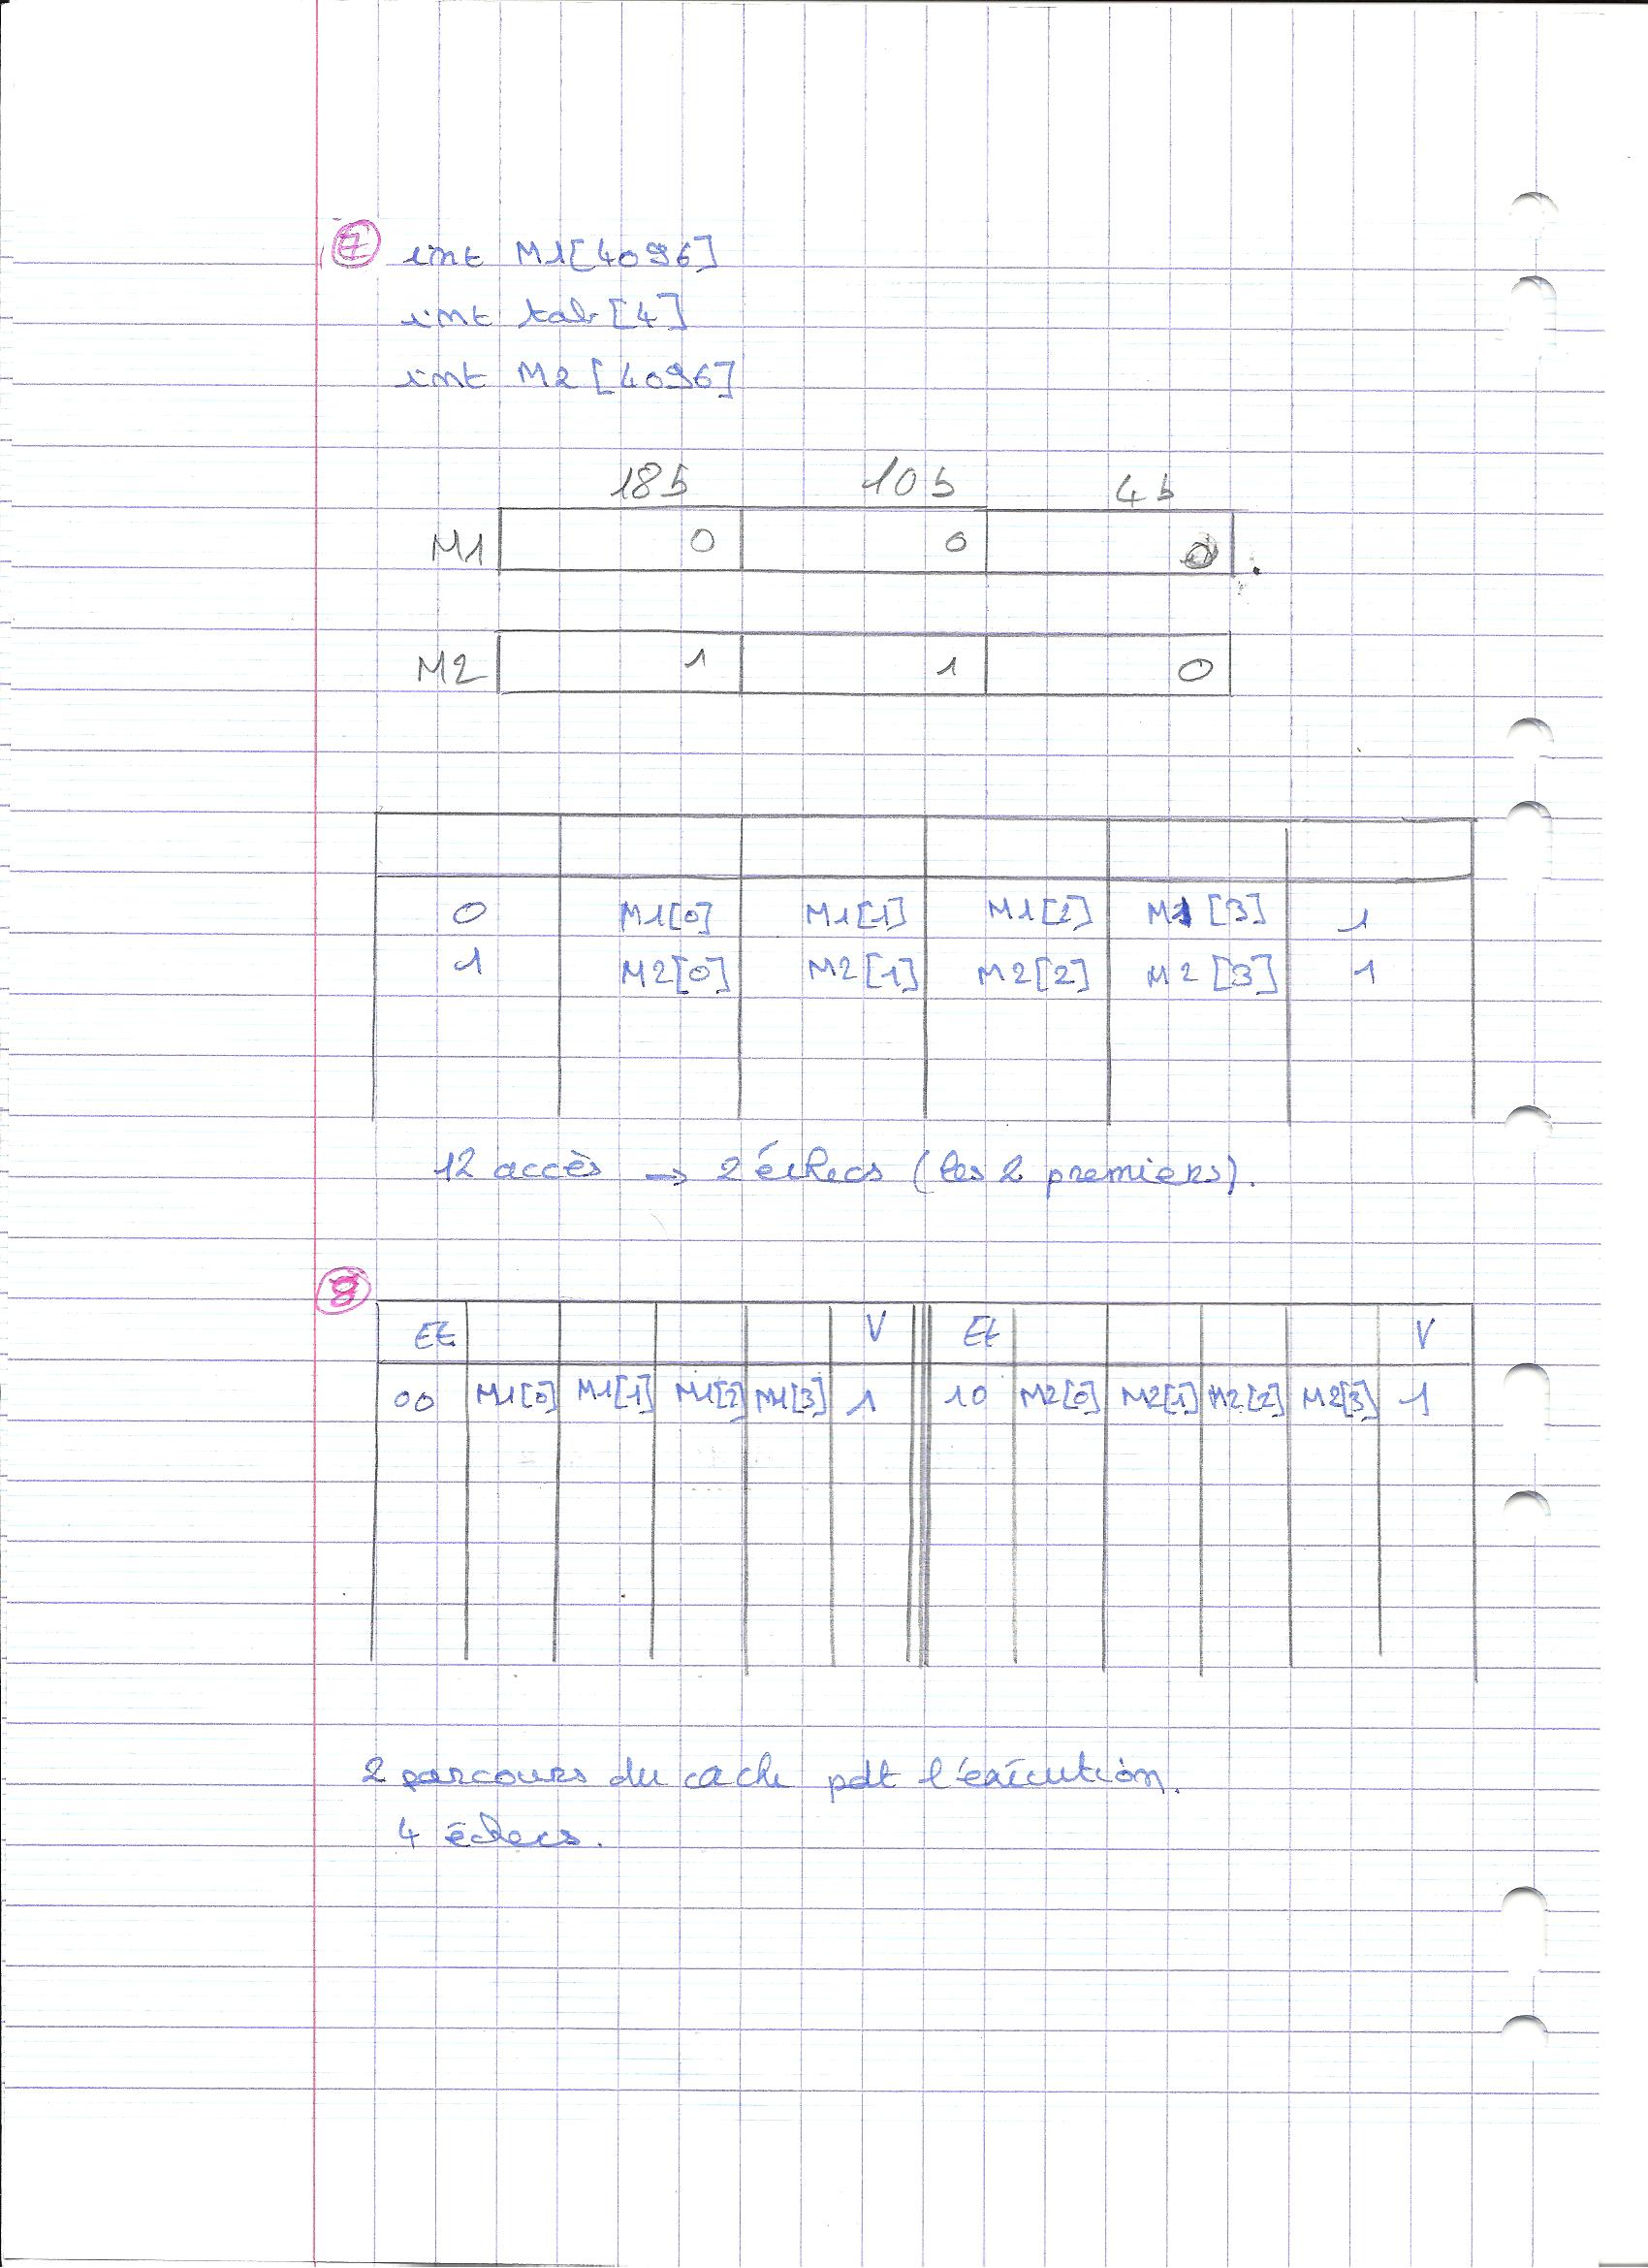 7 int M1[4096]
int tab[4]
int M2[4096]
18b 10b 4b
M1 0 0 0
M2 1 1 0
0 M1[0] M1[1] M1[2] M1[3] 1
1 M2[0] M2[1] M2[2] M2[3] 1
12 accès → 2 échecs (les 2 premiers).
8
Et V Et V
00 M1[0] M1[1] M1[2] M1[3] 1 10 M2[0] M2[1] M2[2] M2[3] 1
2 parcours du cache pdt l'exécution.
4 échecs.